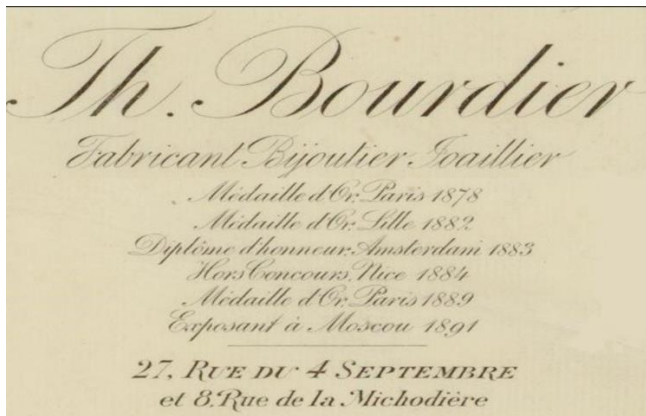 Th. Bourdier
Fabricant Bijoutier Joaillier
Médaille d'Or, Paris 1878
Médaille d'Or, Lille 1882
Diplôme d'honneur, Amsterdam 1883
Hors Concours, Nice 1884
Médaille d'Or, Paris 1889
Exposant à Moscou 1891
27, RUE DU 4 SEPTEMBRE
et 8, Rue de la Michodière